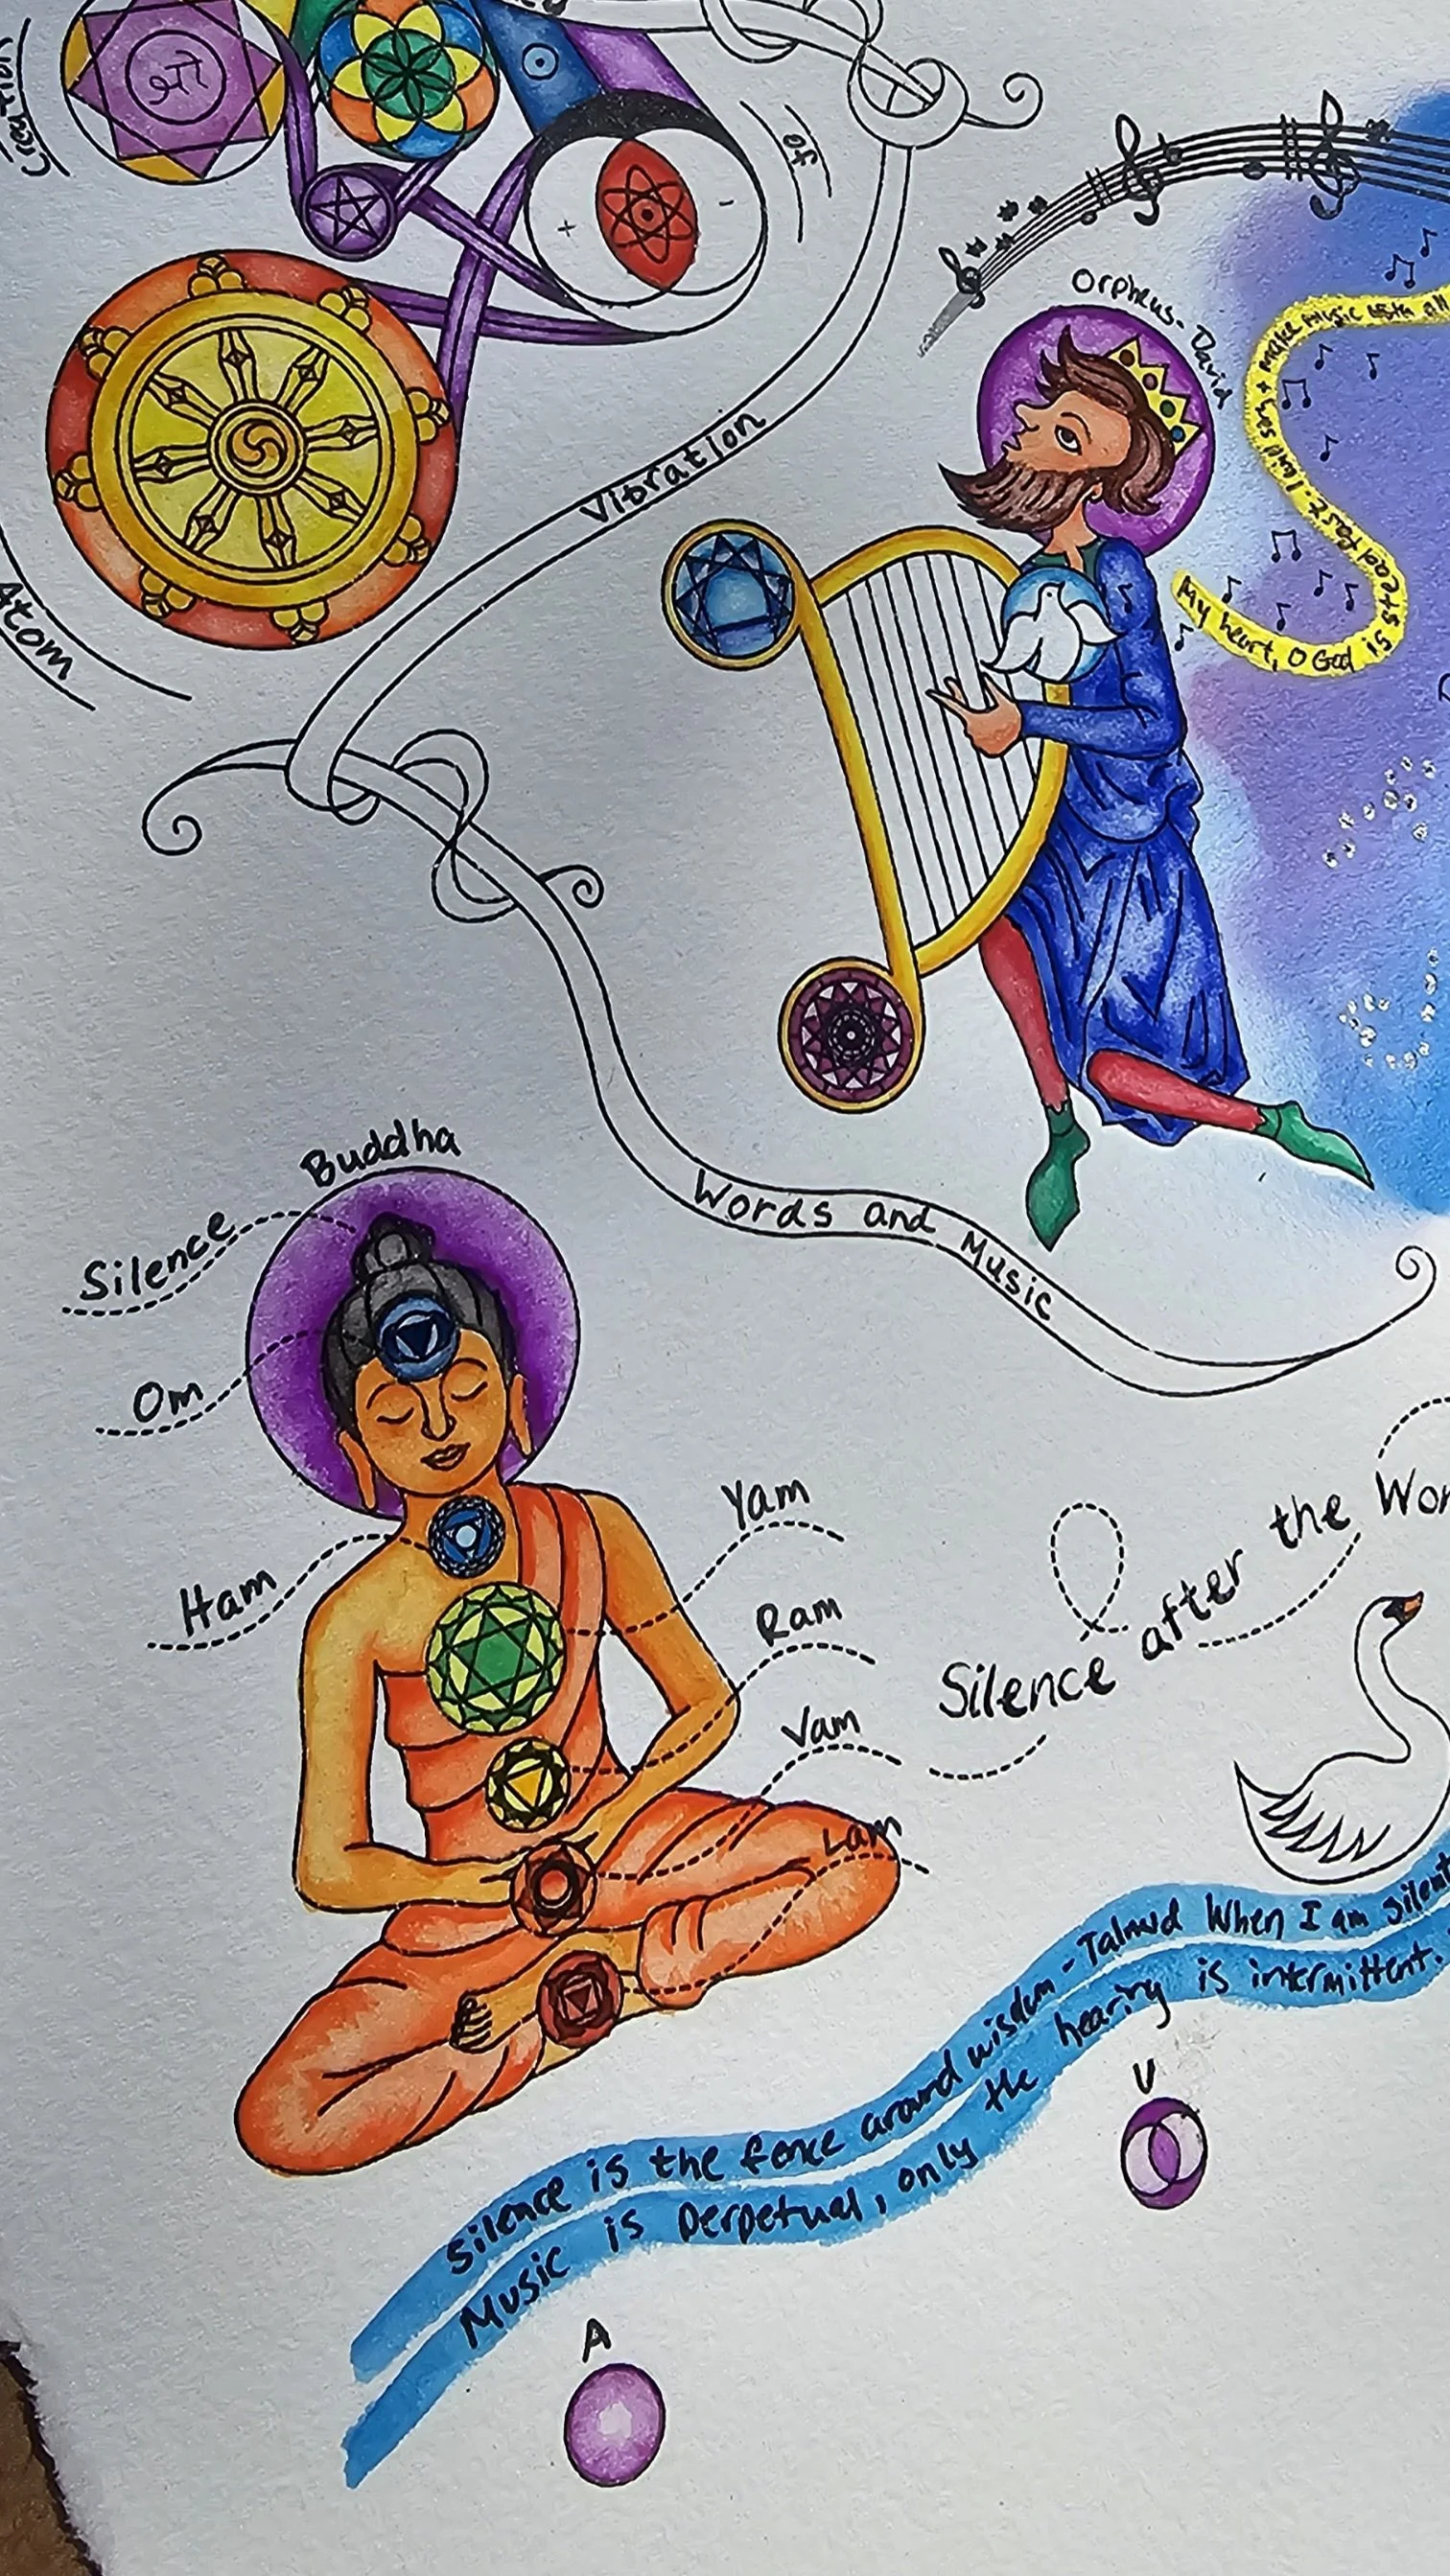 Creation
of
Vibration
Atom
Orpheus-David
My heart, O God is
steadfast. I will sing + make music with all
Words and Music
Buddha
Silence
Om
Ham
Yam
Ram
Vam
Lam
Silence after the
Silence is the fence around wisdom - Talmud When I am silent
Music is perpetual, only the hearing is intermittent.
U
A
+
-